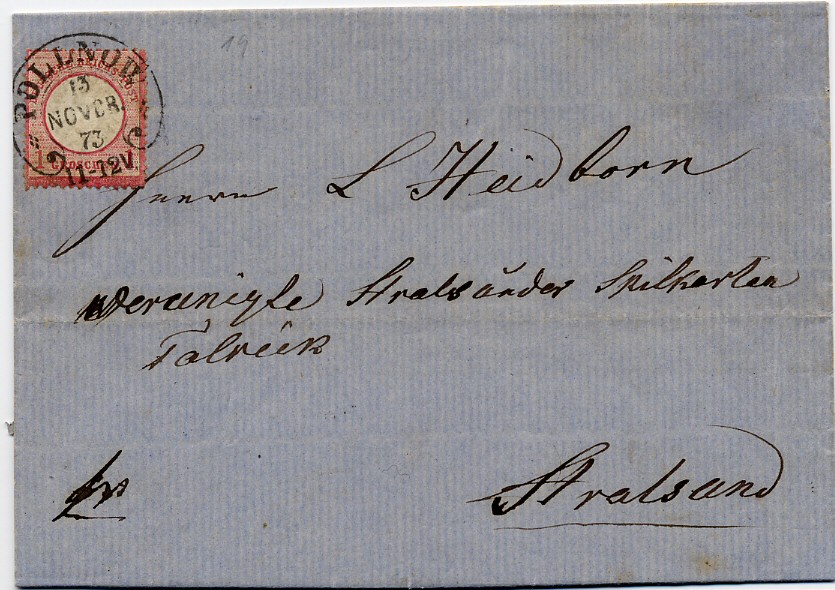 19
POLLNOW
13
NOVBR.
73
11-12V
1 GROSCHEN 1
Herrn L Heidborn
Vereinigte Stralsunder Spilkarten
Fabrick
Stralsund